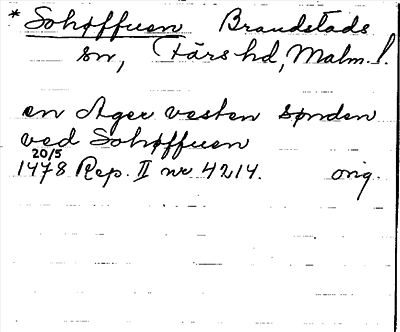 * Sohøffuen Brandstads
sn, Färs hd, Malm. l.
en Ager vesten sønden
ved Sohøffuen
20/5
1478 Rep. II nr 4214. orig.